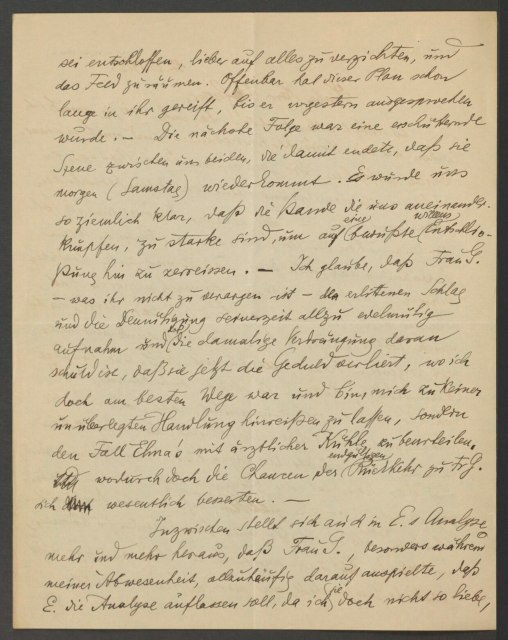 sei entschlossen, lieber auf alles zu verzichten, und
das Feld zu räumen. Offenbar hat dieser Plan schon
lange in ihr gereift, bis er vorgestern ausgesprochen
wurde. — Die nächste Folge war eine erschütternde
Szene zwischen uns beiden, die damit endete, daß sie
morgen (Samstag) wiederkommt. Es wurde uns
so ziemlich klar, daß die Bande die uns aneinander-
knüpfen, zu starke sind, um auf eine bewußte willens Entschlie-
ßung hin zu zerreissen. — Ich glaube, daß Frau G.
— was ihr nicht zu verargen ist — den erlittenen Schlag
und die Demütigung seinerzeit allzu edelmütig
aufnahm und daß die damalige Verdrängung daran
schuld ist, daß sie jetzt die Geduld verliert, wo ich
doch am besten Wege war und bin, mich zu keiner
unüberlegten Handlung hinreißen zu lassen, sondern
den Fall Elmas mit ärztlicher Kühle zu beurteilen,
wodurch doch die Chancen der endgültigen Rückkehr zu Fr. G.
sich wesentlich besserten. —
Inzwischen stellt sich auch in E.s Analyse
mehr und mehr heraus, daß Frau G., besonders während
meiner Abwesenheit, allzuhäufig darauf anspielte, daß
E. die Analyse auflassen soll, da ich sie doch nicht so liebe,